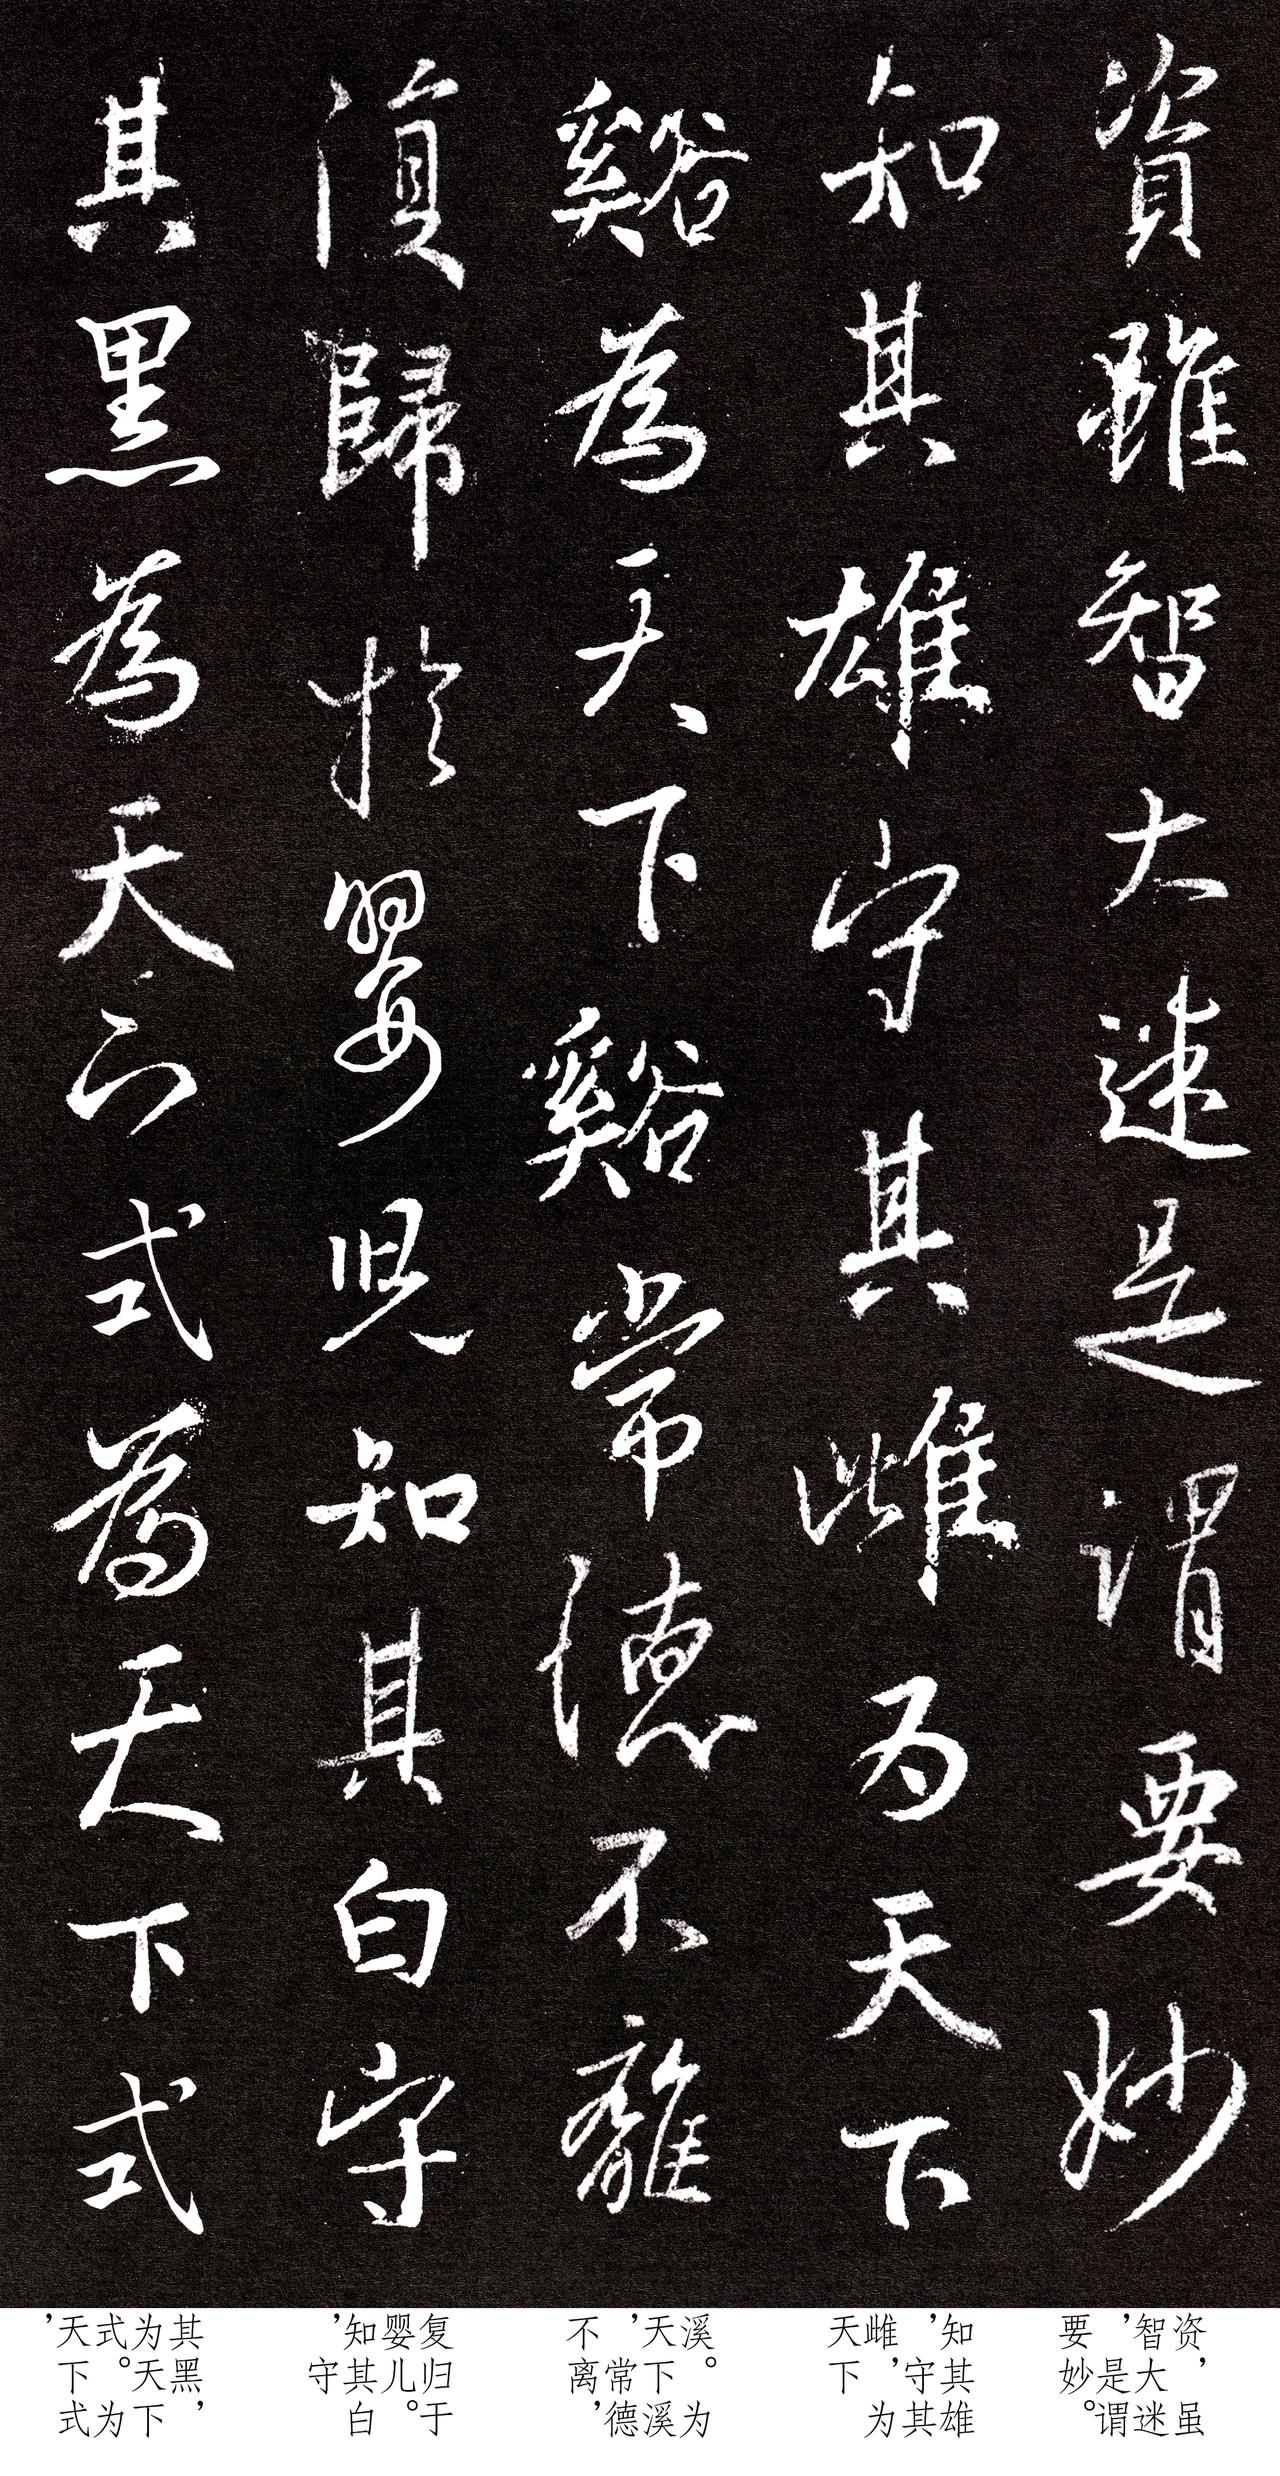 資雖智大迷是謂要妙
知其雄守其雌为天下
谿為天下谿常德不離
復歸於嬰兒知其白守
其黑為天下式為天下式
资，虽
智大迷
，是谓
要妙。
知其雄
，守其
雌，为
天下
溪。为
天下溪
，常德
不离，
复归于
婴儿。
知其白
，守
其黑，
为天下
式。为
天下式
，